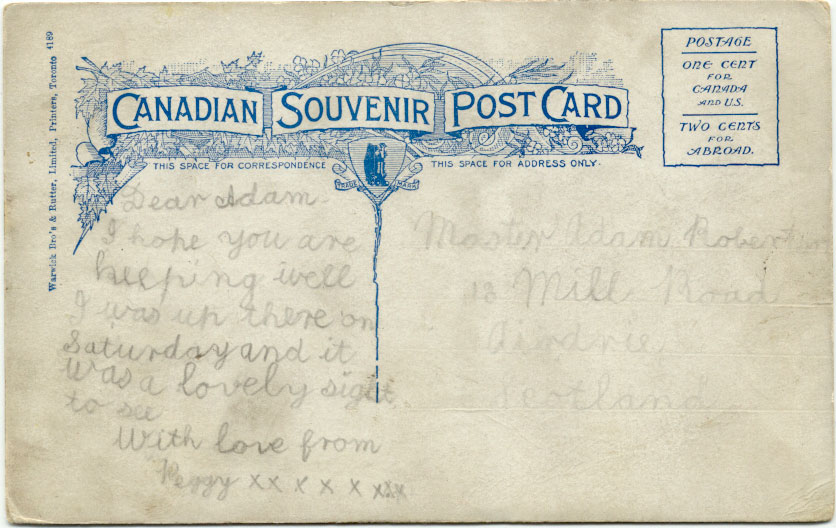 Warwick Bro's & Rutter, Limited, Printers, Toronto 4189
CANADIAN SOUVENIR POST CARD
POSTAGE
ONE CENT
FOR
CANADA
AND U.S.
TWO CENTS
FOR
ABROAD.
THIS SPACE FOR CORRESPONDENCE
THIS SPACE FOR ADDRESS ONLY.
TRADE MARK
Dear Adam
I hope you are
keeping well
I was up there on
Saturday and it
was a lovely sight
to see
With love from
Peggy xx x x x xxx
Master Adam
Mill Road
Airdrie
Scotland